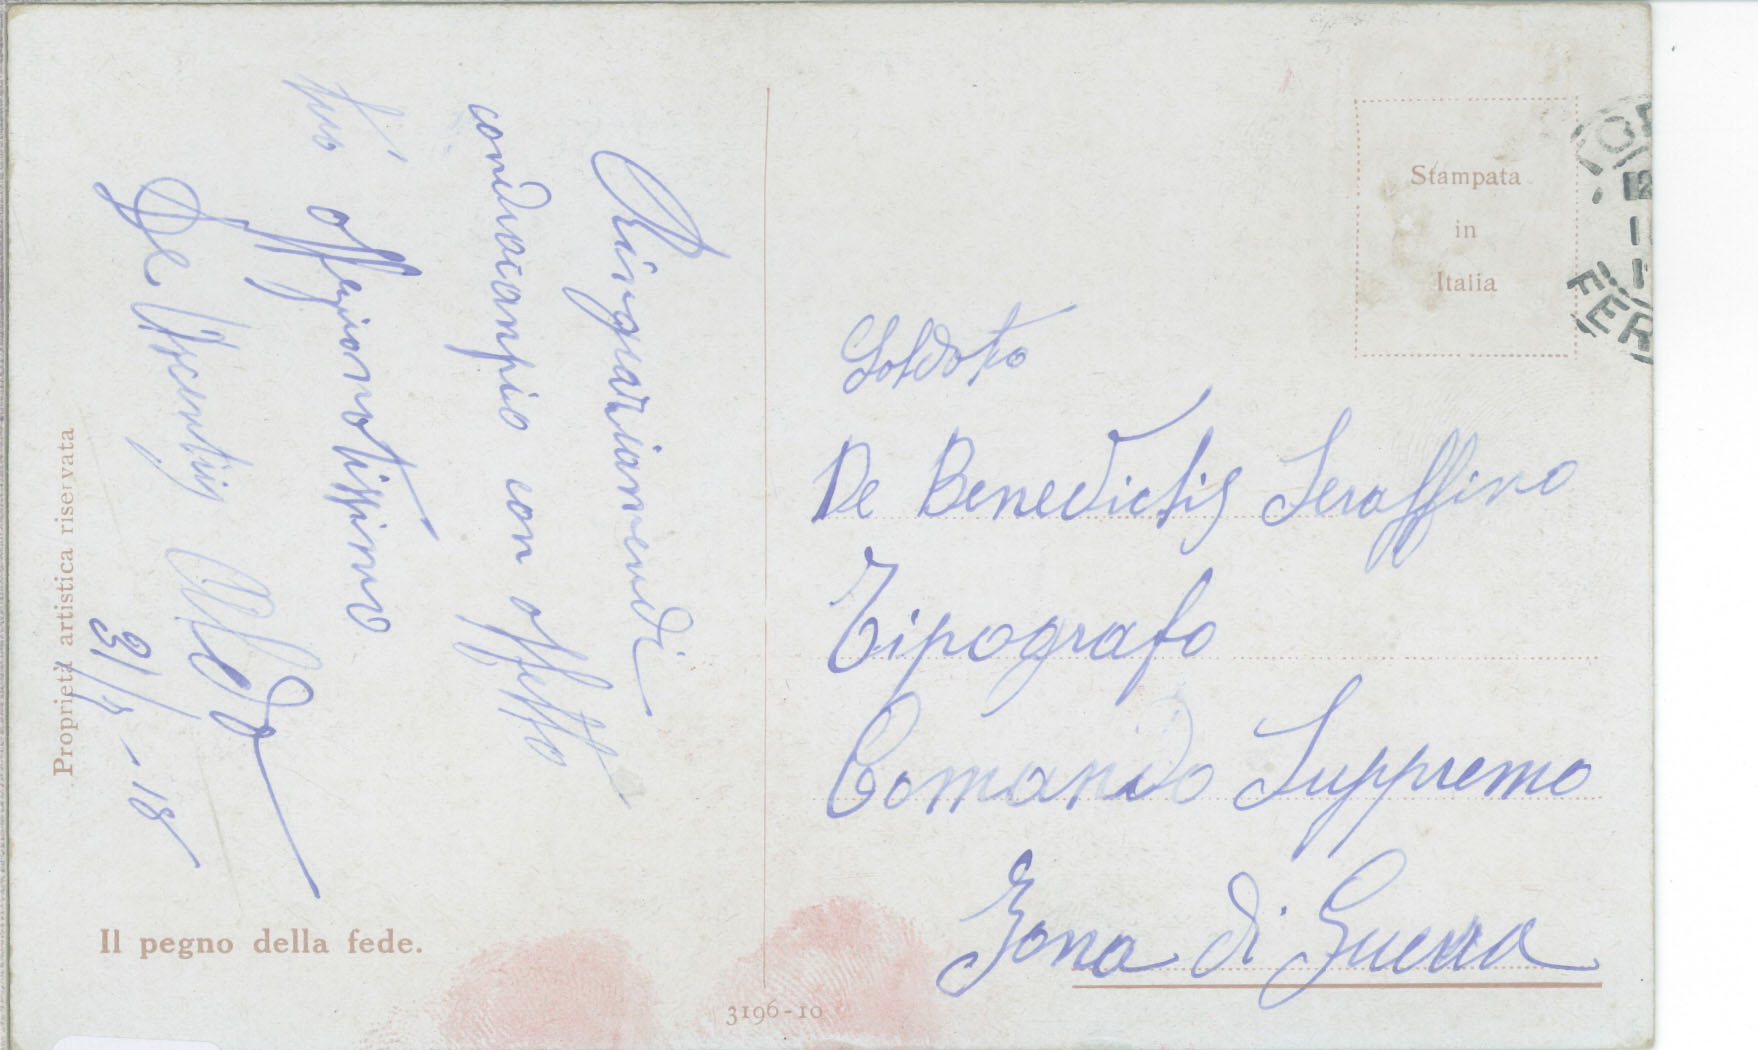 Ringraziamendi
contracanpio con affetto
tuo affezionatissimo
De Vicentis Aldo
31/1-18
Proprietà artistica riservata
Il pegno della fede.
3196-10
Stampata
in
Italia
FER
Soldato
De Benedictis Seraffino
Tipografo
Comando Suppremo
Zona di Guerra